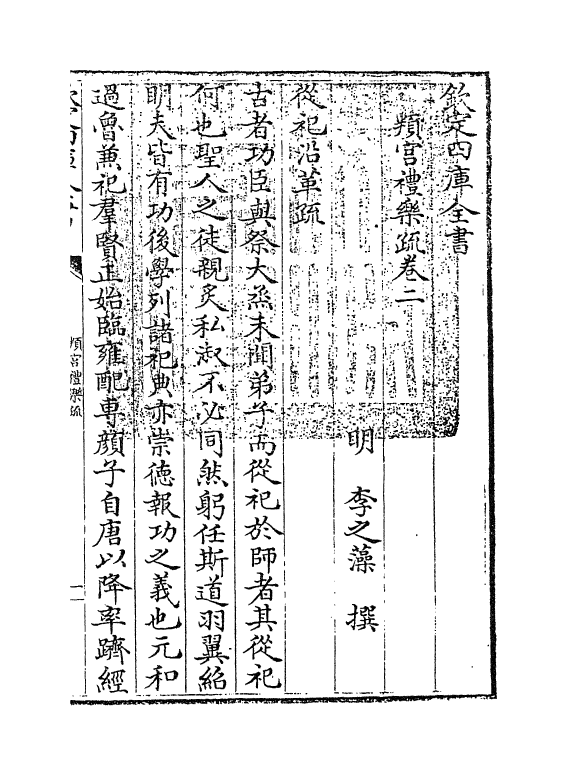 欽定四庫全書
頖宮禮樂疏卷二
明 李之藻 撰
從祀沿革疏
古者功臣與祭大烝未聞弟子而從祀於師者其從祀
何也聖人之徒親炙私淑不必同然躬任斯道羽翼紹
明夫皆有功後學列諸祀典亦崇德報功之義也元和
過魯兼祀羣賢正始臨雍配專顔子自唐以降率躋經
頖宮禮樂疏
一